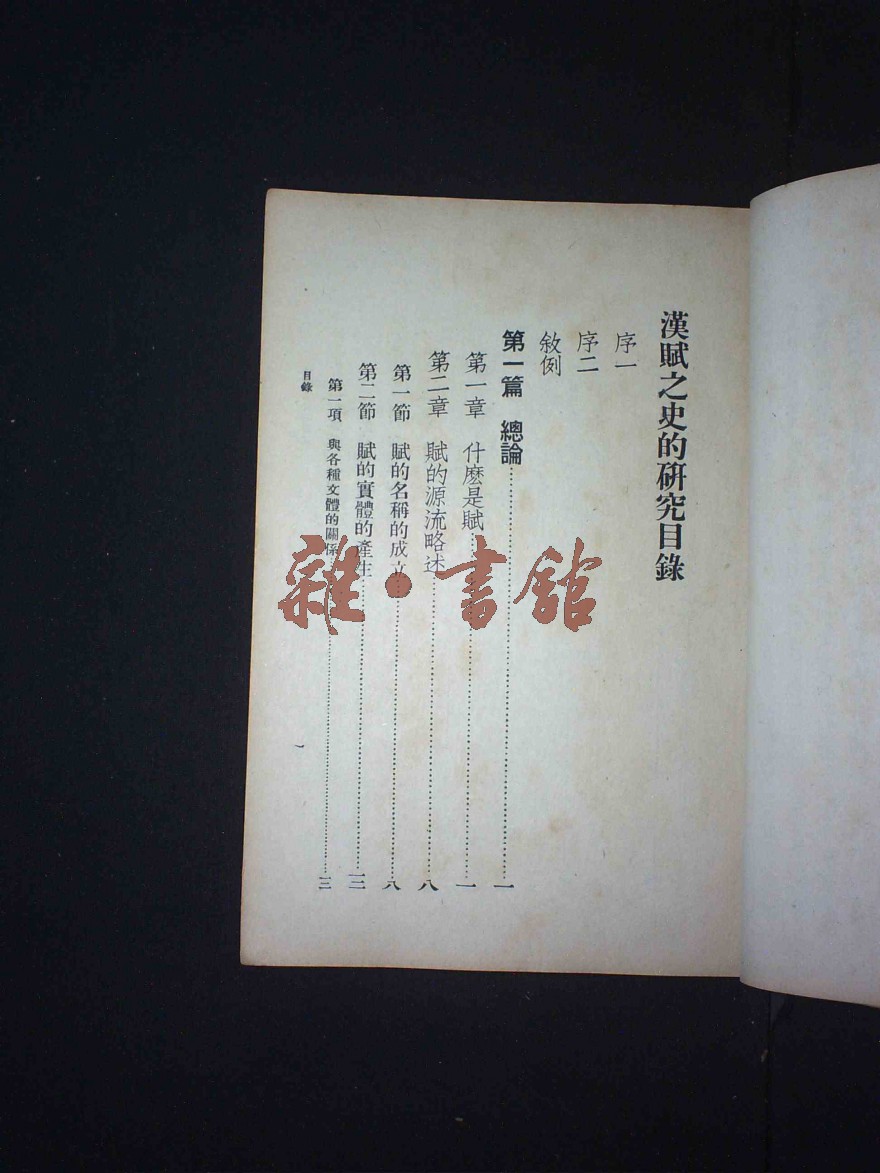 漢賦之史的硏究目錄
序一
序二
敘例
第一篇　總論……一
第一章　什麽是賦……一
第二章　賦的源流略述……八
第一節　賦的名稱的成立……八
第二節　賦的實體的產生……一三
第一項　與各種文體的關係……一三
目錄
一
雜·書館